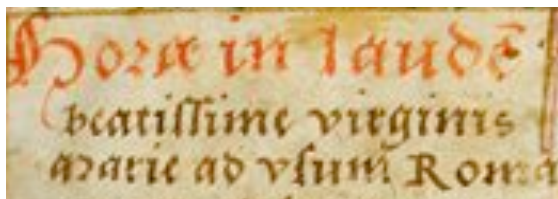 Horæ in laudē
beatissime virginis
marie ad vsum Roma